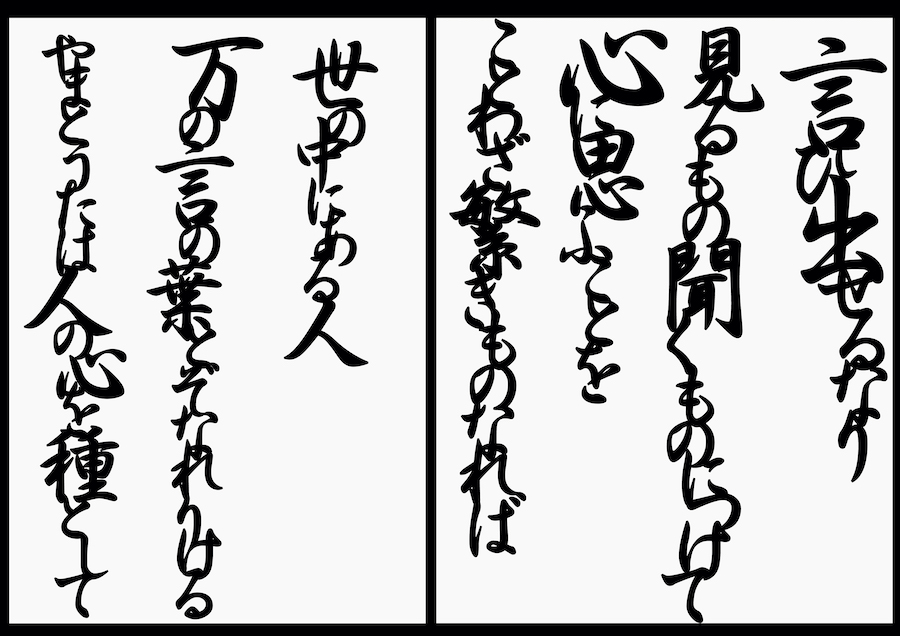 やまとうたは人の心を種として
万の言の葉とぞなれりける
世の中にある人
ことわざ繁きものなれば
心に思ふことを
見るもの聞くものにつけて
言ひ出せるなり